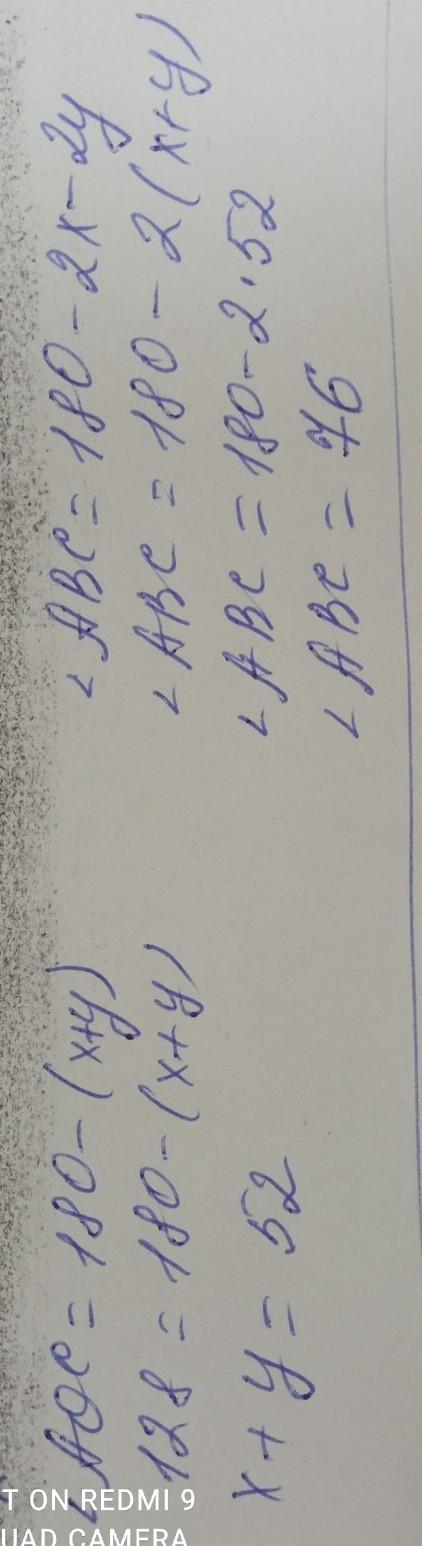 ∠AOC = 180 - (x+y)
128 = 180 - (x+y)
x + y = 52
∠ABC = 180 - 2x - 2y
∠ABC = 180 - 2(x+y)
∠ABC = 180 - 2·52
∠ABC = 76
T ON REDMI 9
UAD CAMERA